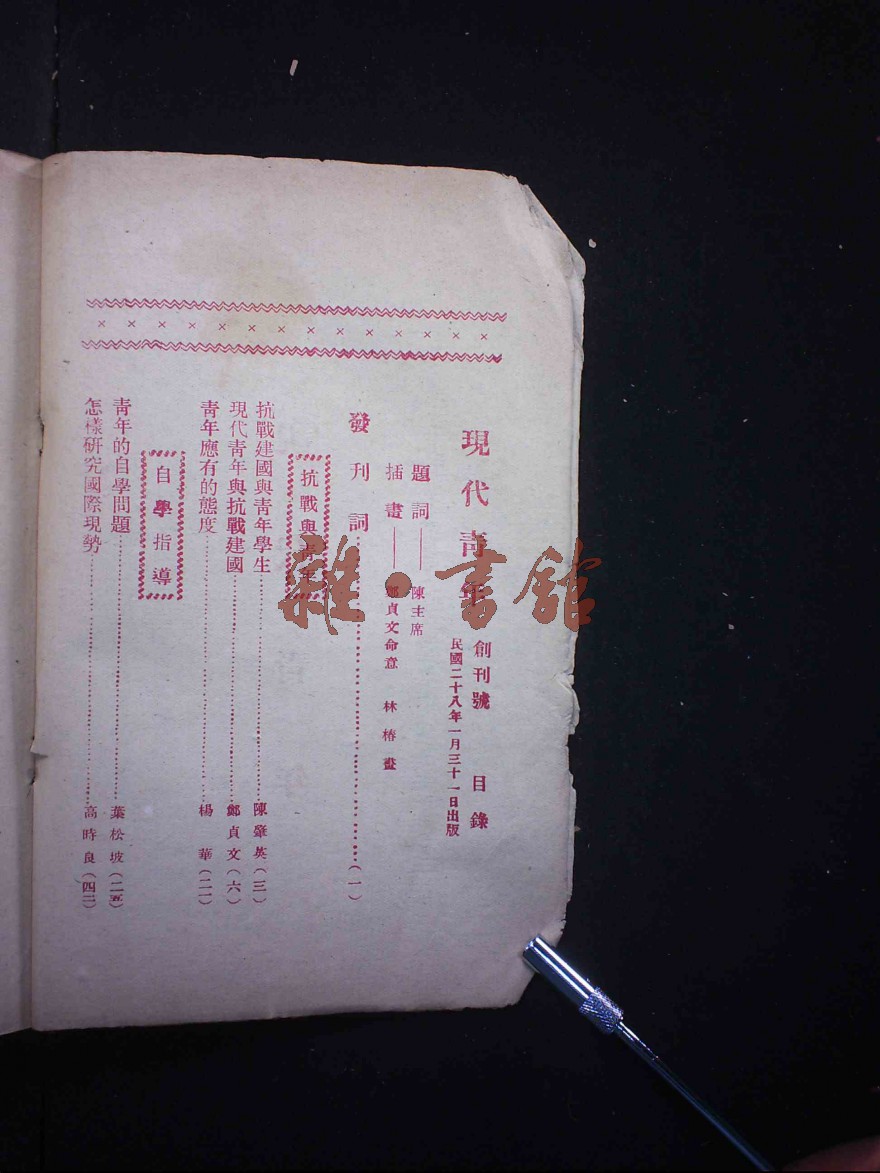 現代青年 創刊號 目錄
民國二十八年一月三十一日出版
題詞——陳主席
插畫——鄭貞文命意 林椿畫
發刊詞……(一)
抗戰與青年
抗戰建國與青年學生……陳肇英(三)
現代青年與抗戰建國……鄭貞文(六)
青年應有的態度……楊華(二一)
自學指導
青年的自學問題……葉松坡(二五)
怎樣研究國際現勢……高時良(四三)
雜·書館